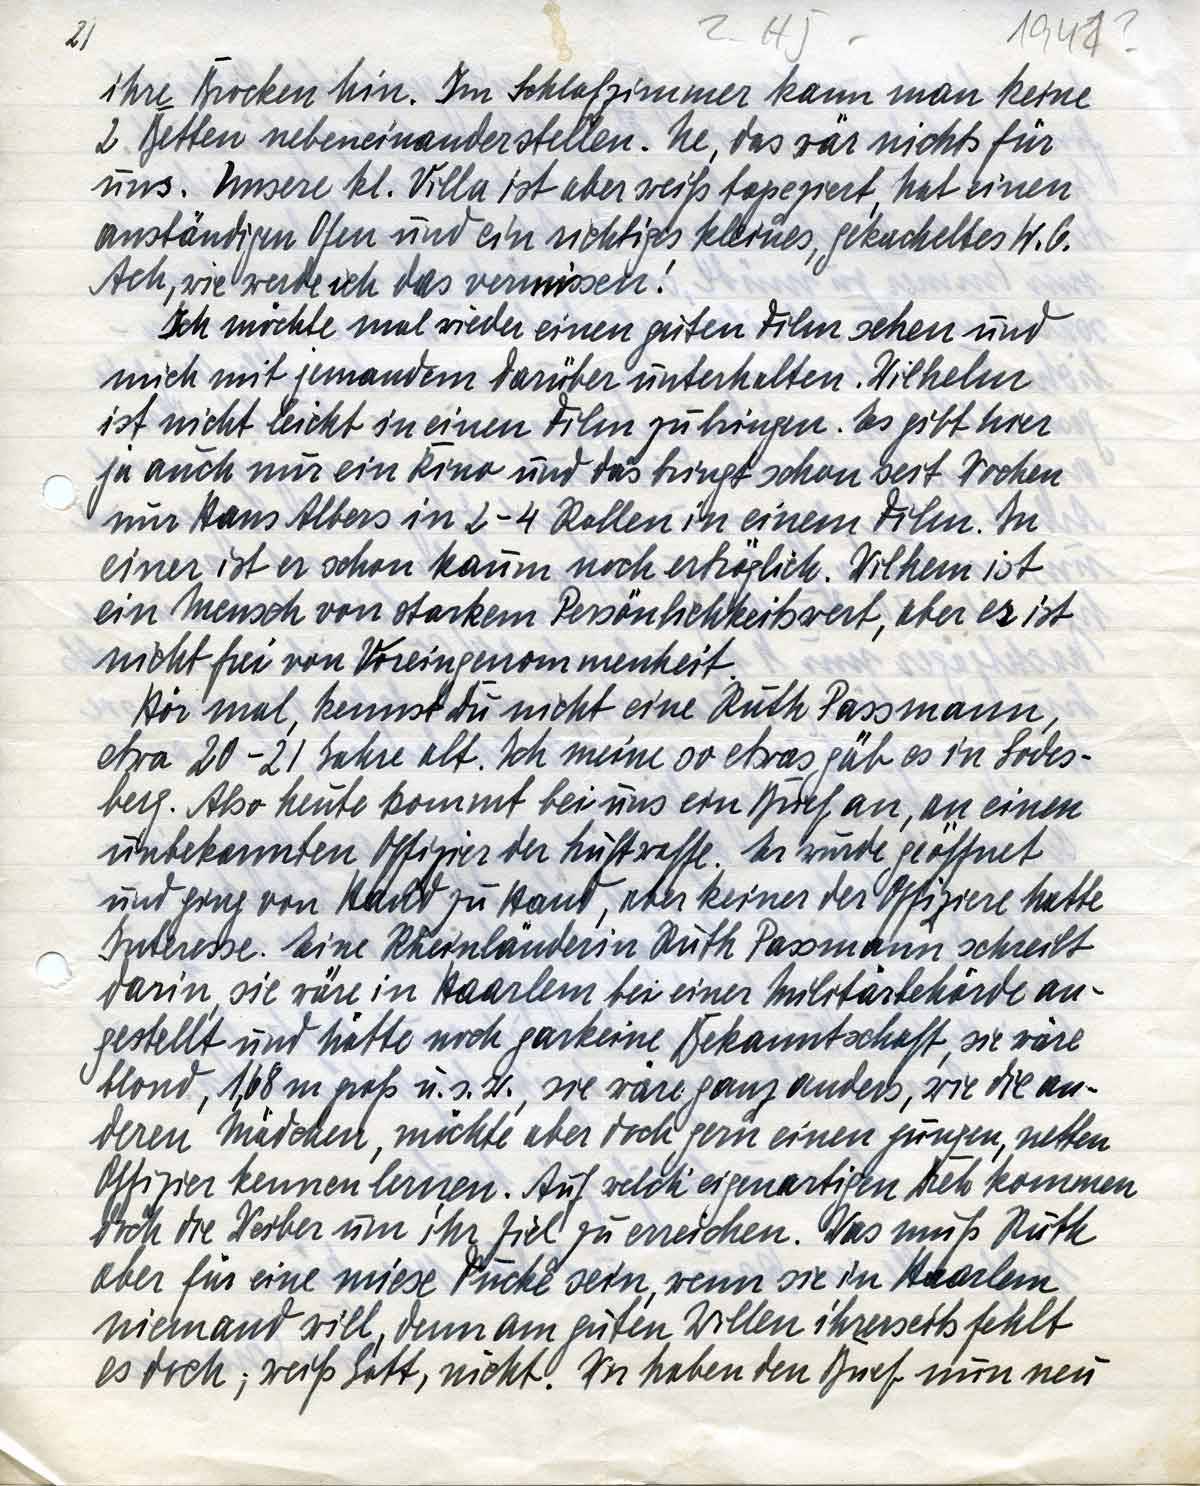 21
2. HJ -
1941?
ihre Brocken hin. Im Schlafzimmer kann man keine
2 Betten nebeneinanderstellen. Ne, das wär nichts für
uns. Unsere kl. Villa ist aber weiß tapeziert, hat einen
anständigen Ofen und ein richtiges kleines, gekacheltes W.C.
Ach, wie werde ich das vermissen!
Ich möchte mal wieder einen guten Film sehen und
mich mit jemandem darüber unterhalten. Wilhelm
ist nicht leicht in einen Film zu bringen. Es gibt hier
ja auch nur ein Kino und das bringt schon seit Wochen
nur Hans Albers in 2-4 Rollen in einem Film. In
einer ist er schon kaum noch erträglich. Wilhem ist
ein Mensch von starkem Persönlichkeitswert, aber er ist
nicht frei von Voreingenommenheit.
Hör mal, kennst Du nicht eine Ruth Passmann,
etwa 20-21 Jahre alt. Ich meine so etwas gäb es in Godes-
berg. Also heute kommt bei uns ein Brief an, an einen
unbekannten Offizier der Luftwaffe. Er wurde geöffnet
und ging von Hand zu Hand, aber keiner der Offiziere hatte
Interesse. Eine Rheinländerin Ruth Passmann schreibt
darin, sie wäre in Haarlem bei einer Militärbehörde an-
gestellt und hätte noch garkeine Bekanntschaft, sie wäre
blond, 1,68 m groß u.s.w., sie wäre ganz anders, wie die an-
deren Mädchen, möchte aber doch gern einen jungen, netten
Offizier kennen lernen. Auf welch eigenartigen Dreh kommen
doch die Weiber um ihr Ziel zu erreichen. Was muß Ruth
aber für eine miese Zucke sein, wenn sie in Haarlem
niemand will, denn am guten Willen ihrerseits fehlt
es doch, weiß Gott, nicht. Wir haben den Brief nun neu